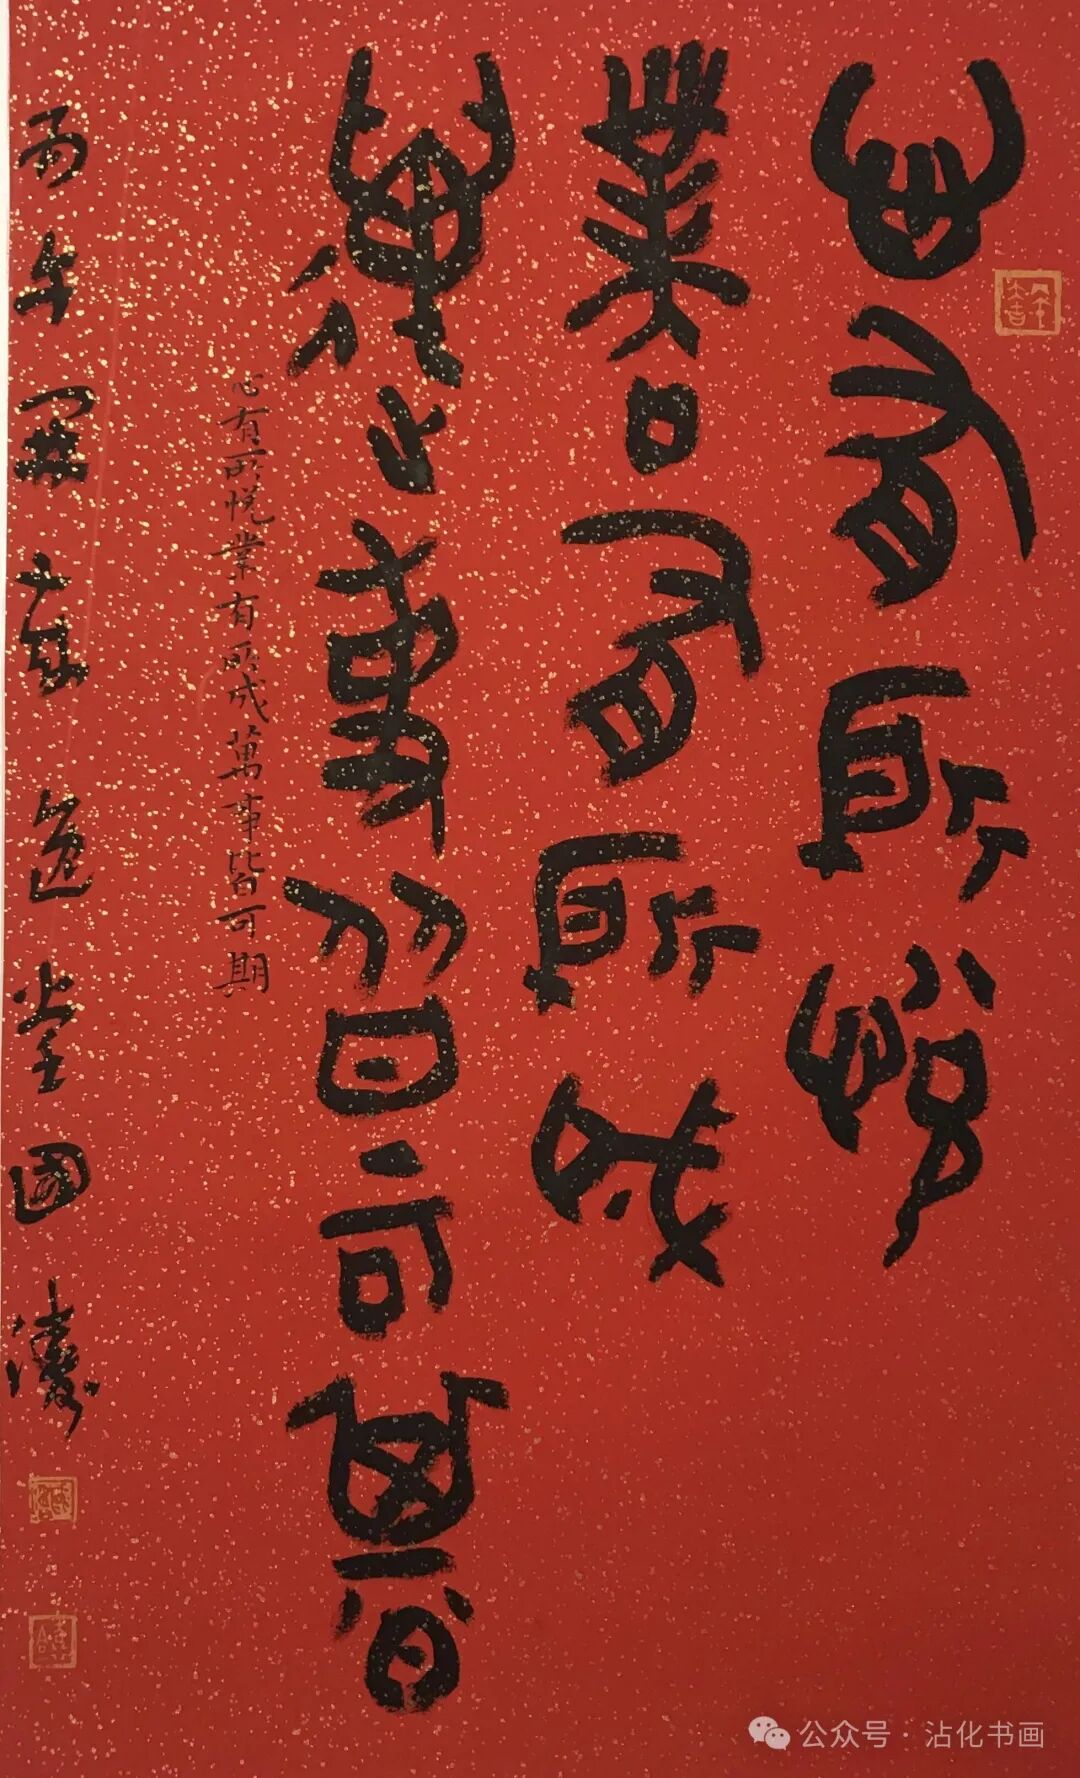 心有所悦
業有所成
萬事皆可期
心有所悦業有所成萬事皆可期
丙午開歲逸堂國濤
公众号 · 沾化书画